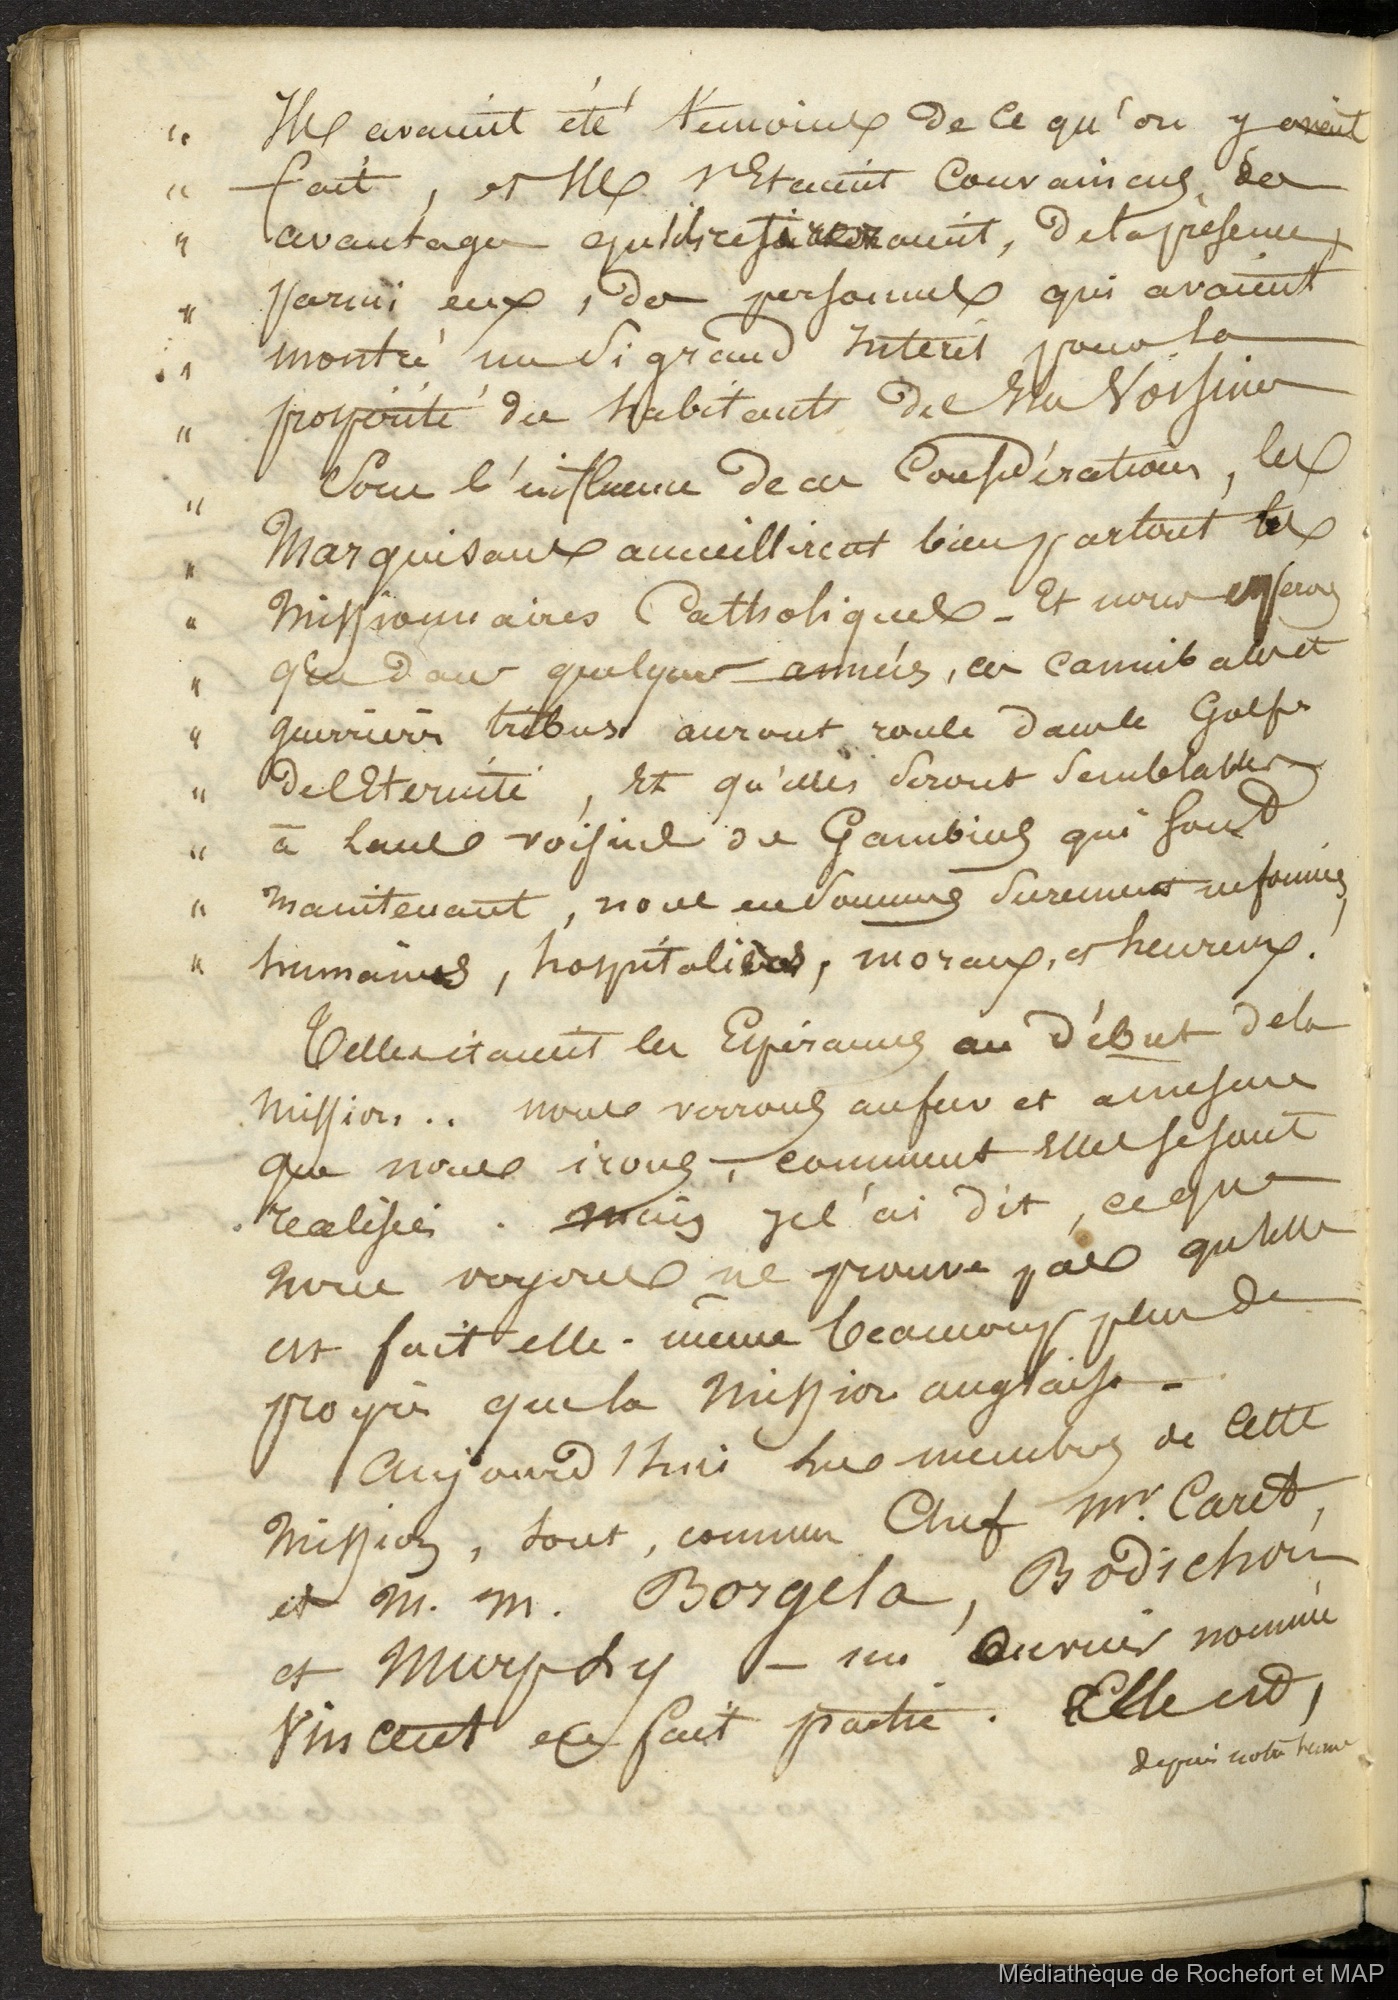 " Ils avaient été témoins de ce qu'on y avait
" fait, et Ils s'Etaient Convaincus des
" avantages qu'ils retireraient, de la présence,
" parmi eux, de personnes qui avaient
" montré un si grand Interêt pour la
" prosperité des habitants de Iles Voisines
" Sous l'influence de ces Considérations, les
" Marquisans accueillirent bien partout les
" Missionnaires Catholiques - Et nous esperons
" que dans quelques années, ces cannibales et
" guerrieres tribus auront roulé dans le Golfe
" de l'Eternité, Et qu'elles seront semblables
" à leurs voisins de Gambier qui sont
" maintenant, nous en sommes surement informés,
" humains, hospitaliers, moraux, et heureux.!
Telles etaient les Espérances au début de la
Mission.. nous verrons au fur et a mesure
que nous irons, comment elles se sont
realisées. mais je l'ai dit, ce que
nous voyons ne prouve pas qu'elle
ait fait elle-même beaucoup plus de
progrès que la Mission anglaise -
Aujourd'hui les membres de cette
Mission, sont, comme Chef Mr. Caret,
et M. M. Borgela, Bodichon
et Murphy - un ouvrier nommé
Vincent en fait partie. Elle est,
depuis notre
Médiathèque de Rochefort et MAP